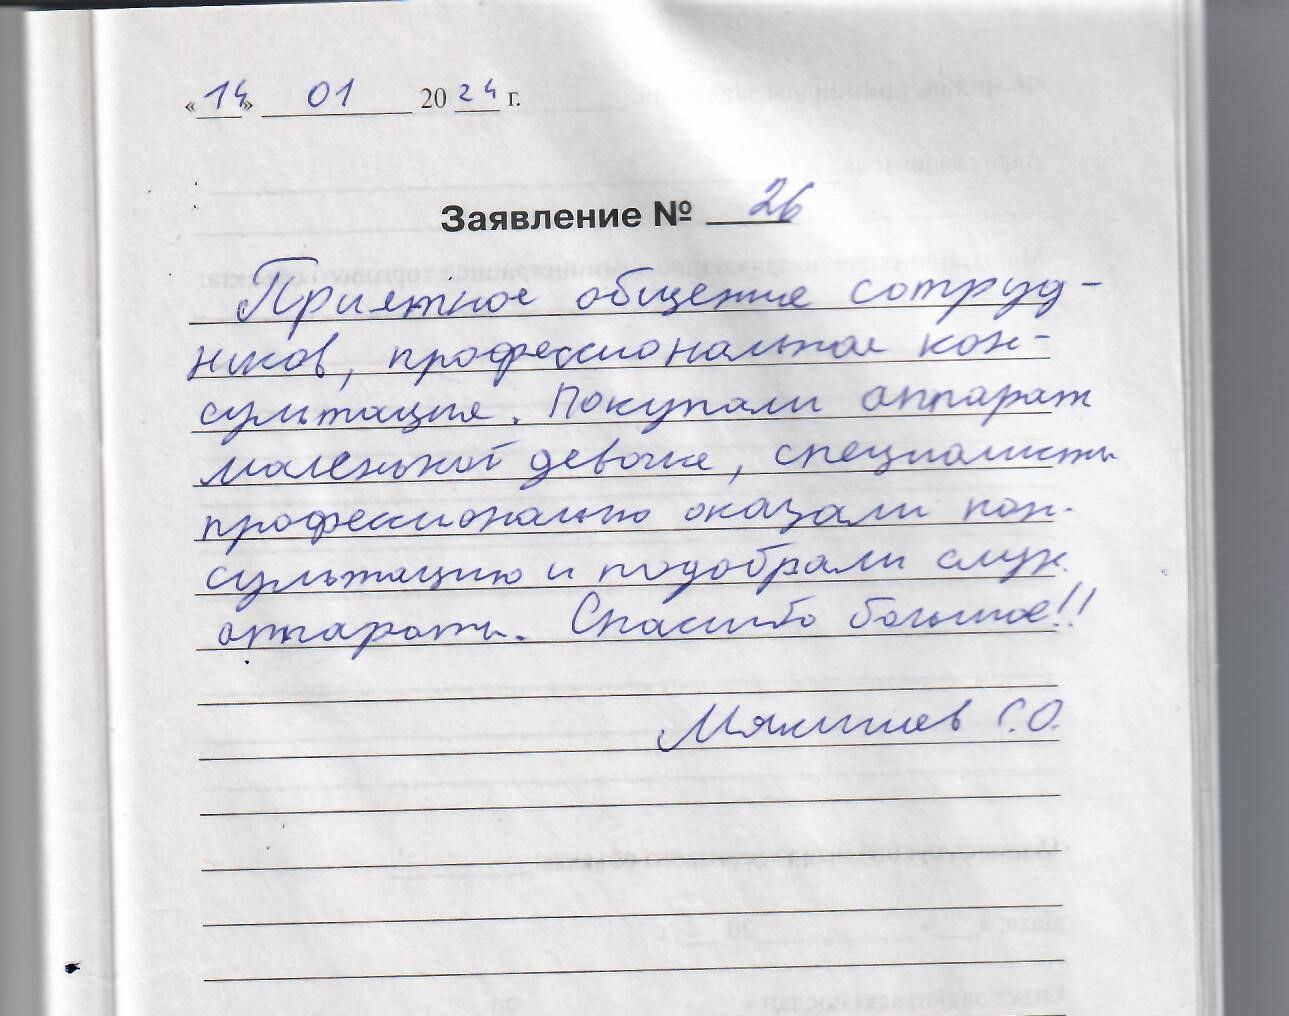 «14» 01 2024 г.
Заявление № 26
Приятное общение сотруд-
ников, профессиональная кон-
сультация. Покупали аппарат
маленькой девочке, специалисты
профессионально оказали кон-
сультацию и подобрали слух.
аппараты. Спасибо большое!!
С.О.